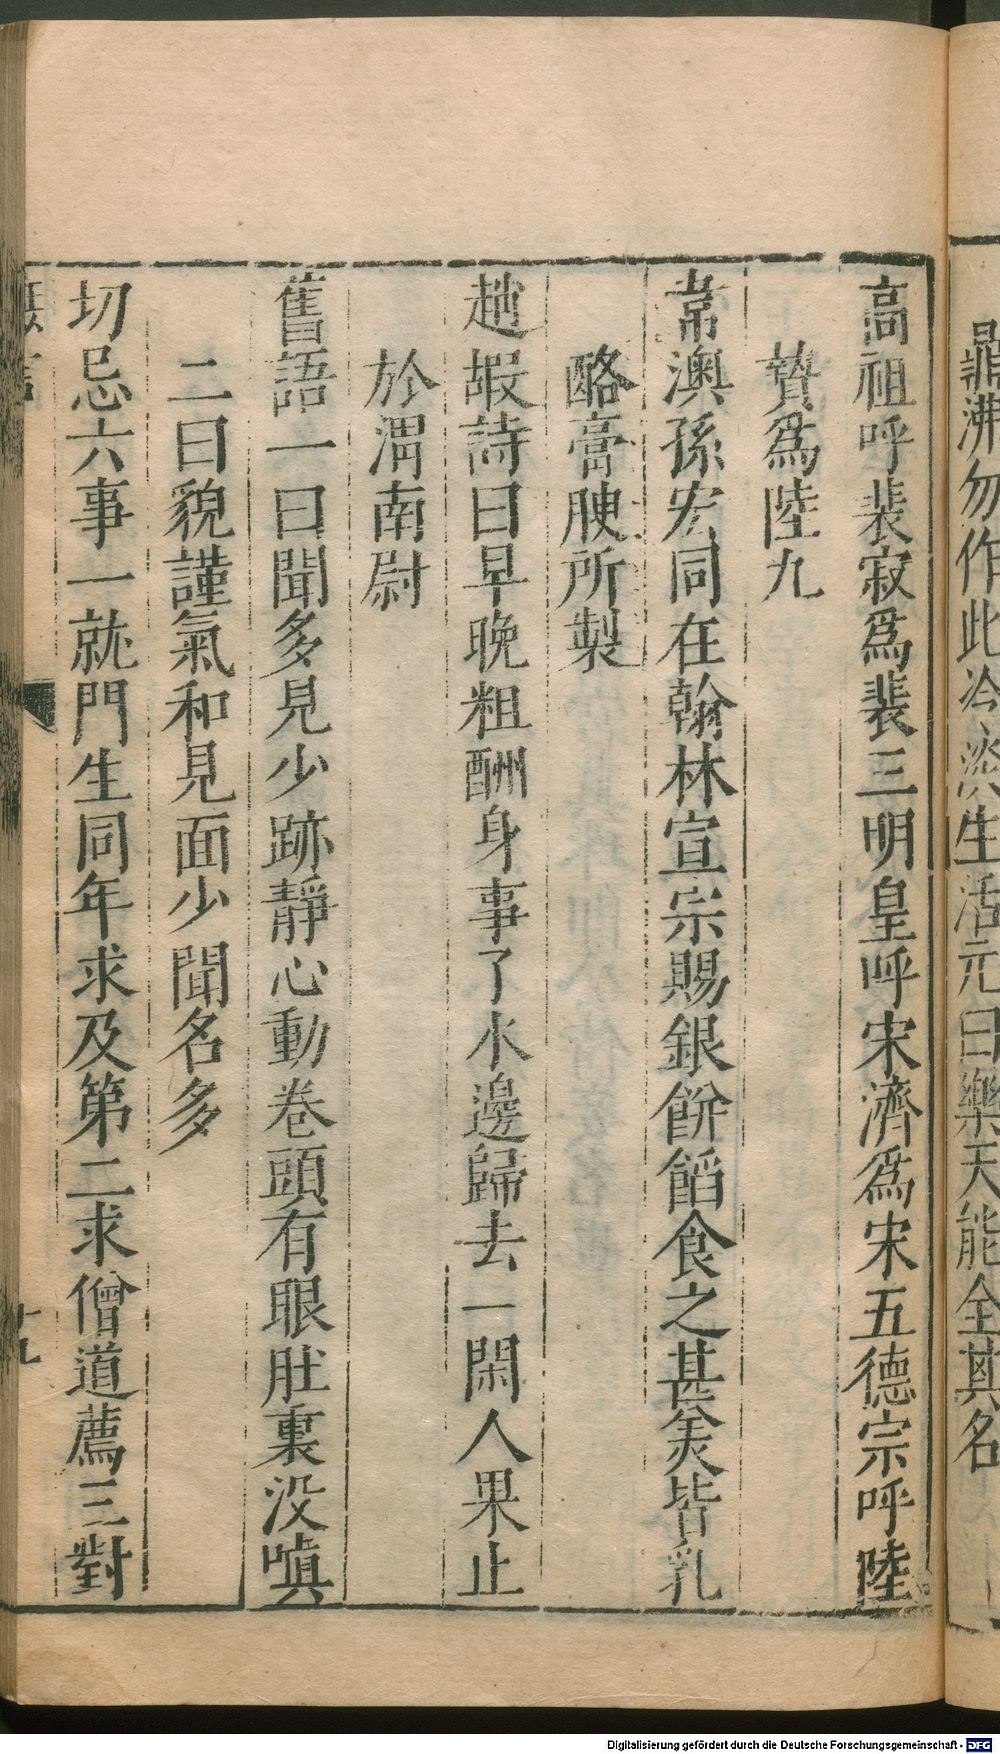 鼎沸勿作此冷淡生活元曰樂天能全其名
高祖呼裴寂爲裴三明皇呼宋濟爲宋五德宗呼陸
贄爲陸九
韋澳孫宏同在翰林宣宗賜銀餅餡食之甚美皆乳
酪膏腴所製
趙嘏詩曰早晚粗酬身事了水邊歸去一閑人果止
於渭南尉
舊語一曰聞多見少跡靜心動卷頭有眼肚裏没嗔
二曰貌謹氣和見面少聞名多
切忌六事一就門生同年求及第二求僧道薦三對
十九
Digitalisierung gefördert durch die Deutsche Forschungsgemeinschaft - DFG